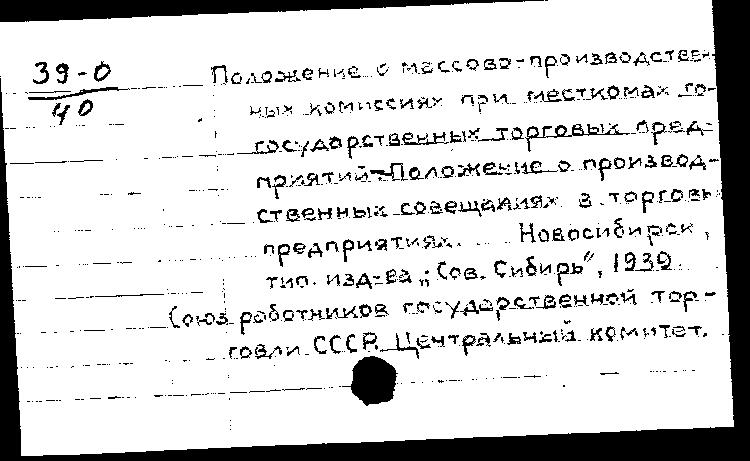 39-0
40
Положение о массово-производствен-
ных комиссиях при месткомах го-
государственных торговых пред-
приятий-Положение о производ-
ственных совещаниях в торговы
предприятиях. Новосибирск,
тип. изд-ва „Сов. Сибирь", 1939.
Союз работников государственной тор-
говли СССР. Центральный комитет.